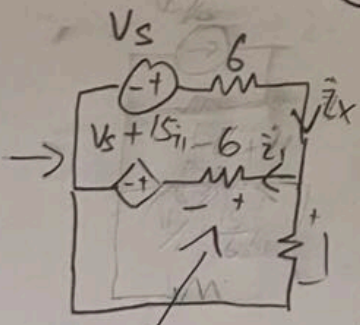 Vs
- + 6
ix
Vs + 15i1 - 6 i1
- +
- +
+
-